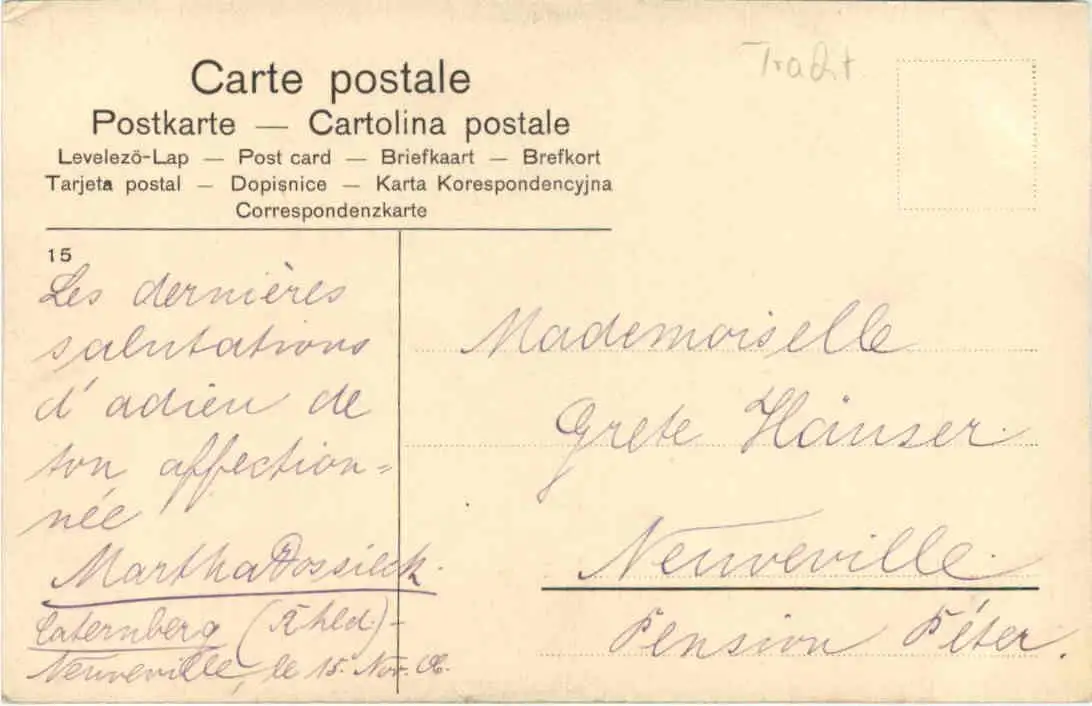 Carte postale
Postkarte — Cartolina postale
Levelező-Lap — Post card — Briefkaart — Brefkort
Tarjeta postal — Dopisnice — Karta Korespondencyjna
Correspondenzkarte
15
Les dernières
salutations
d'adieu de
ton affection=
née
Martha Dossieck.
Caternberg (Rhld.)-
Neuveville, le 15. Nov. 06.
Mademoiselle
Grete Häuser.
Neuveville.
Pension Féter.